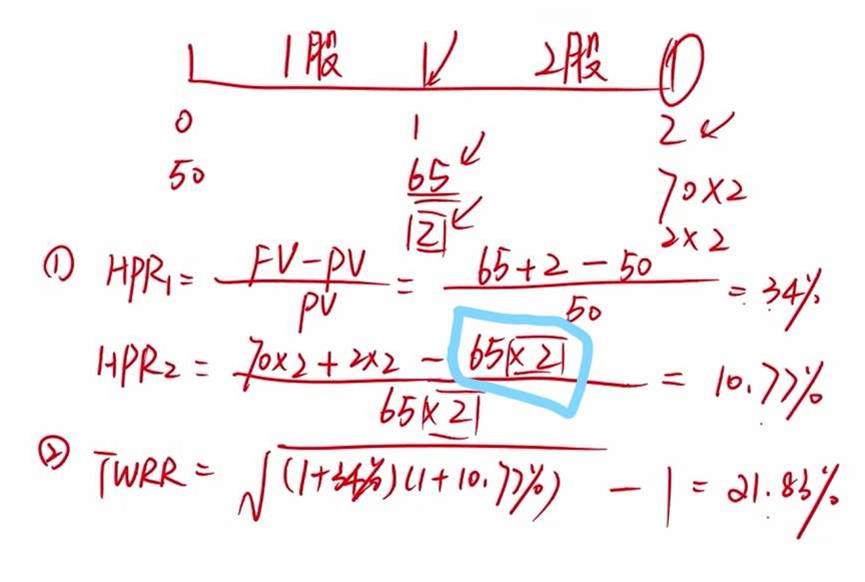 1股 2股 ①
0 1 2
50 65 70×2
2 2×2
① HPR₁ = (FV-PV)/PV = (65+2-50)/50 = 34%
HPR₂ = (70×2+2×2-65×2)/(65×2) = 10.77%
② TWRR = √((1+34%)(1+10.77%)) - 1 = 21.83%